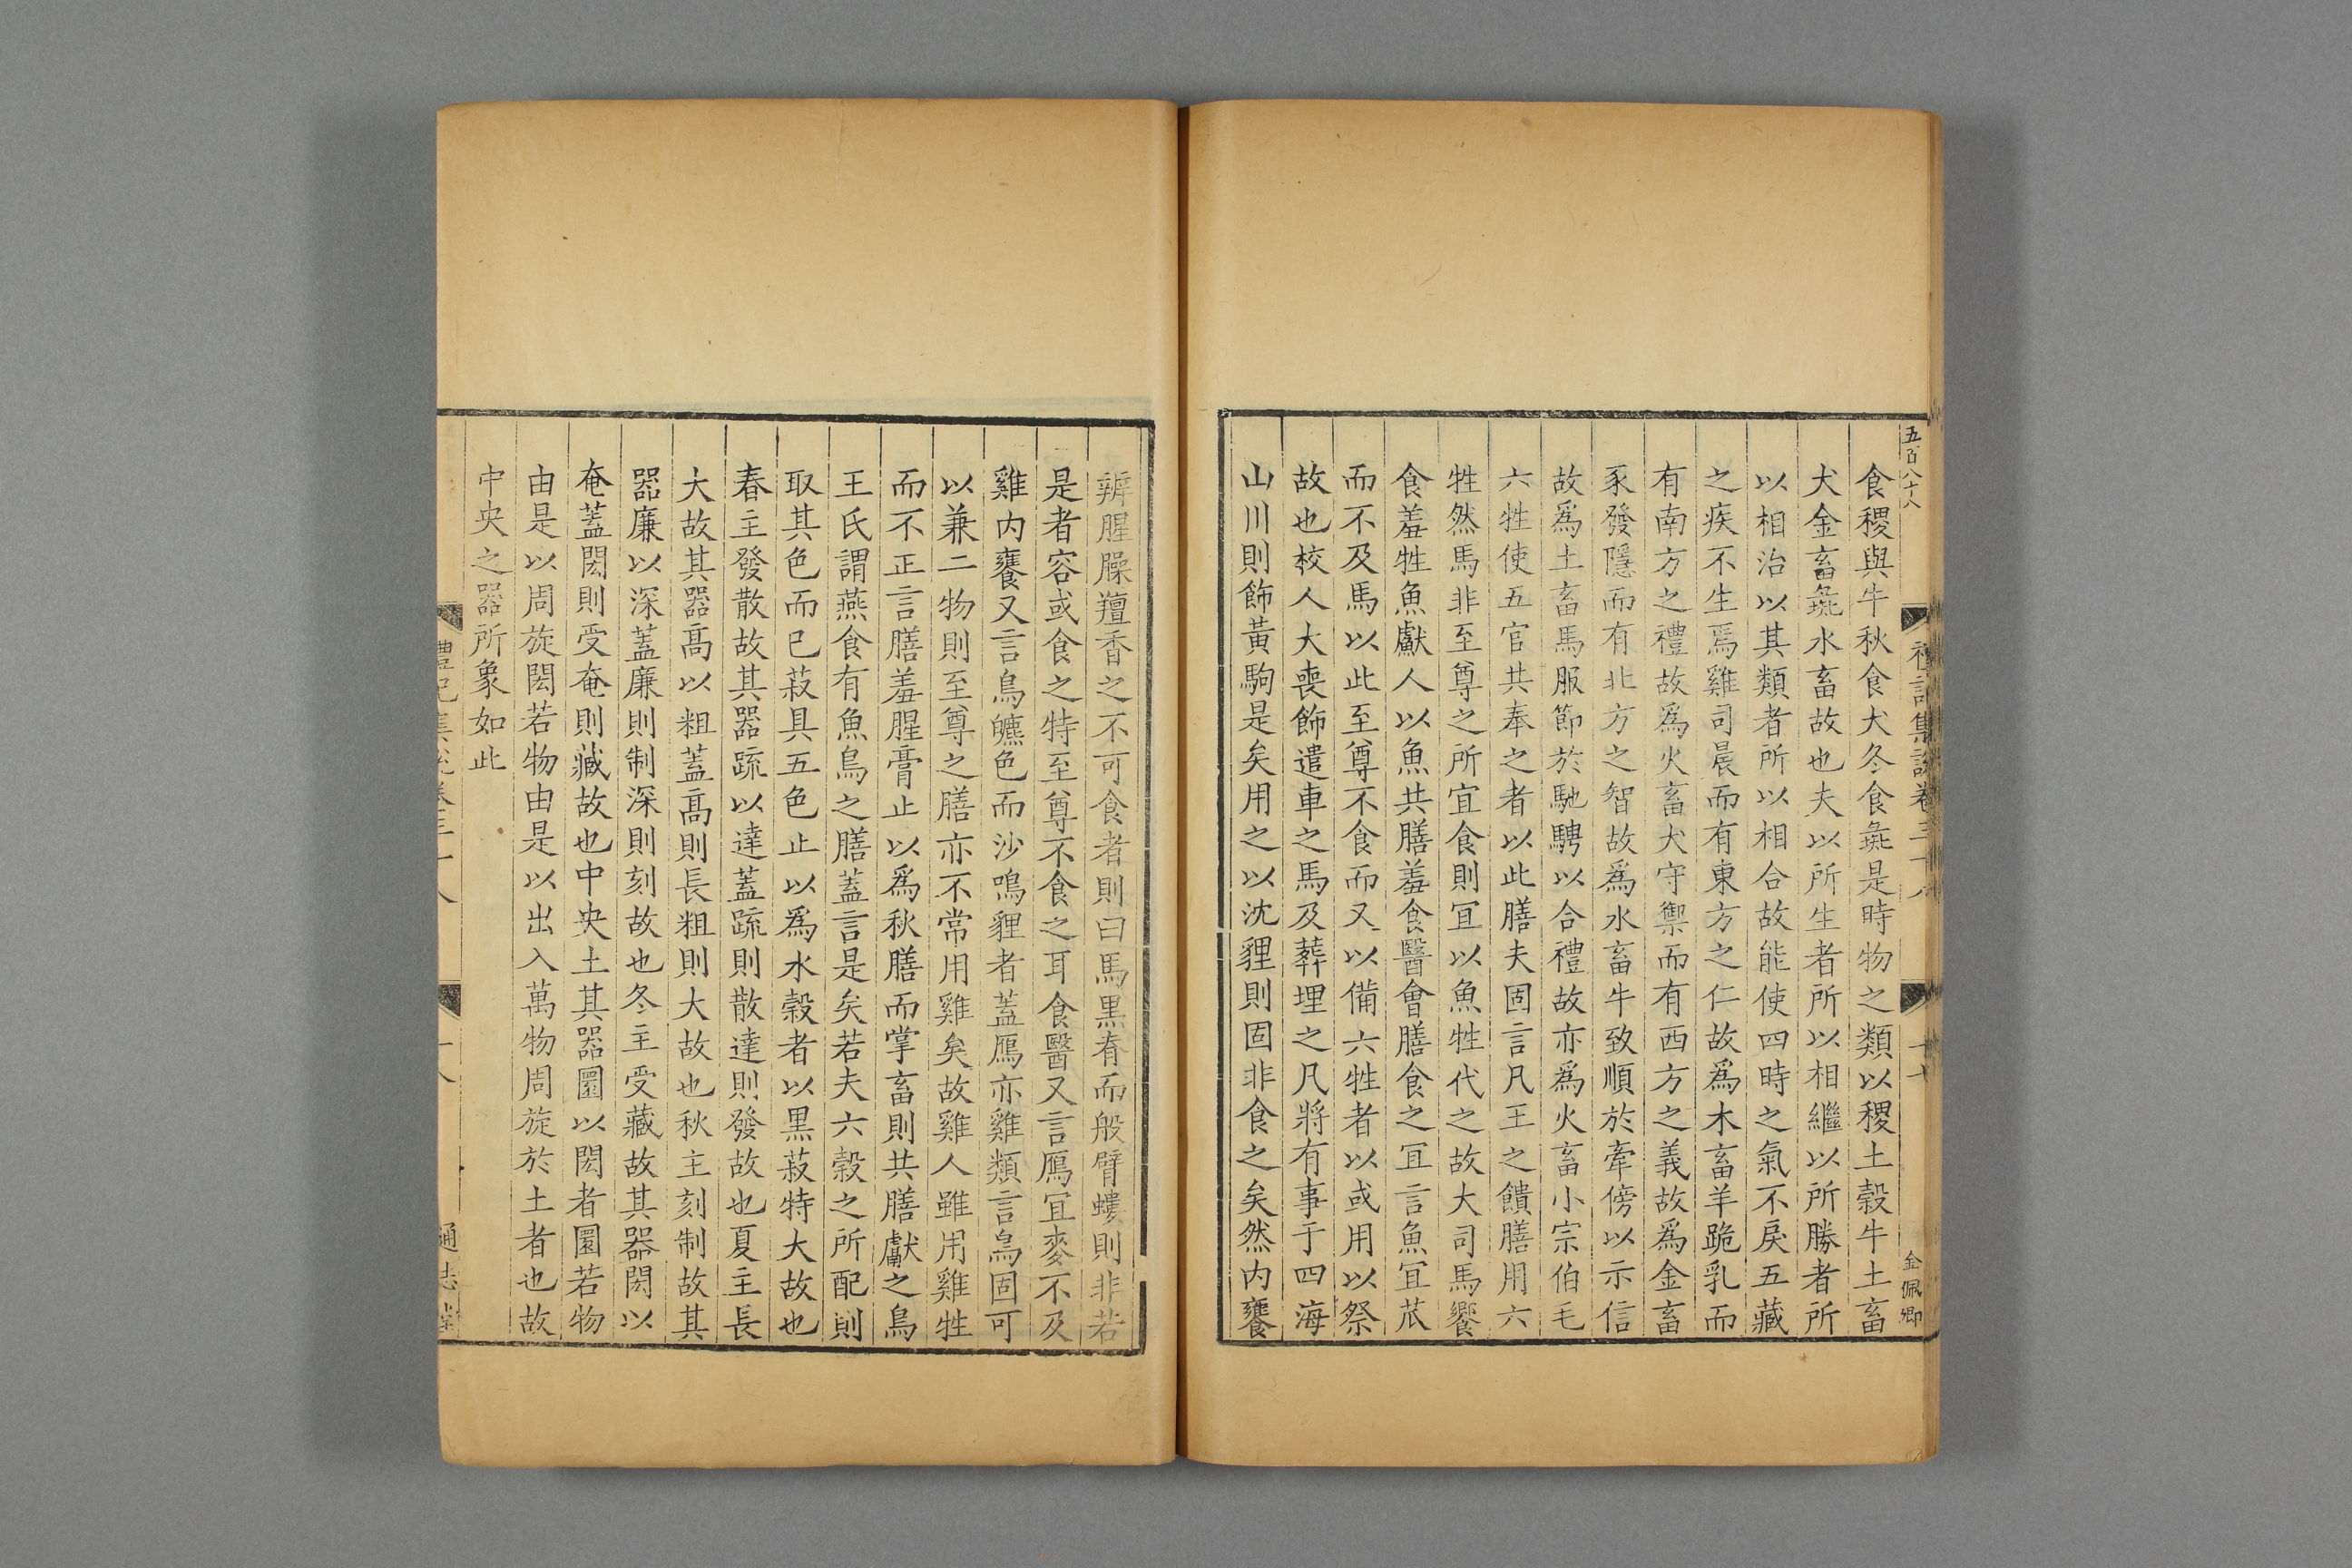 五百八十八
禮記集說卷三十八
十七
金佩卿
食稷與牛秋食犬冬食彘是時物之類以稷土穀牛土畜
犬金畜彘水畜故也夫以所生者所以相繼以所勝者所
以相治以其類者所以相合故能使四時之氣不戾五藏
之疾不生焉雞司晨而有東方之仁故爲木畜羊跪乳而
有南方之禮故爲火畜犬守禦而有西方之義故爲金畜
豕發隱而有北方之智故爲水畜牛致順於牽傍以示信
故爲土畜馬服節於馳騁以合禮故亦爲火畜小宗伯毛
六牲使五官共奉之者以此膳夫固言凡王之饋膳用六
牲然馬非至尊之所宜食則冝以魚牲代之故大司馬饗
食羞牲魚獻人以魚共膳羞食醫會膳食之冝言魚冝苽
而不及馬以此至尊不食而又以備六牲者以或用以祭
故也校人大喪飾遣車之馬及葬埋之凡將有事于四海
山川則飾黃駒是矣用之以沈貍則固非食之矣然内饔
辨腥臊羶香之不可食者則曰馬黒脊而般臂螻則非若
是者容或食之特至尊不食之耳食醫又言鴈冝麥不及
雞内饔又言鳥皫色而沙鳴貍者蓋鴈亦雞類言鳥固可
以兼二物則至尊之膳亦不常用雞矣故雞人雖用雞牲
而不正言膳羞腥膏止以爲秋膳而掌畜則共膳獻之鳥
王氏謂燕食有魚鳥之膳蓋言是矣若夫六穀之所配則
取其色而已菽具五色止以爲水穀者以黒菽特大故也
春主發散故其器疏以達蓋疏則散達則發故也夏主長
大故其器髙以粗蓋髙則長粗則大故也秋主刻制故其
器廉以深蓋廉則制深則刻故也冬主受藏故其器閎以
奄蓋閎則受奄則藏故也中央土其器圜以閎者圜若物
由是以周旋閎若物由是以出入萬物周旋於土者也故
中央之器所象如此
禮記集說卷三十八
十八
通志堂